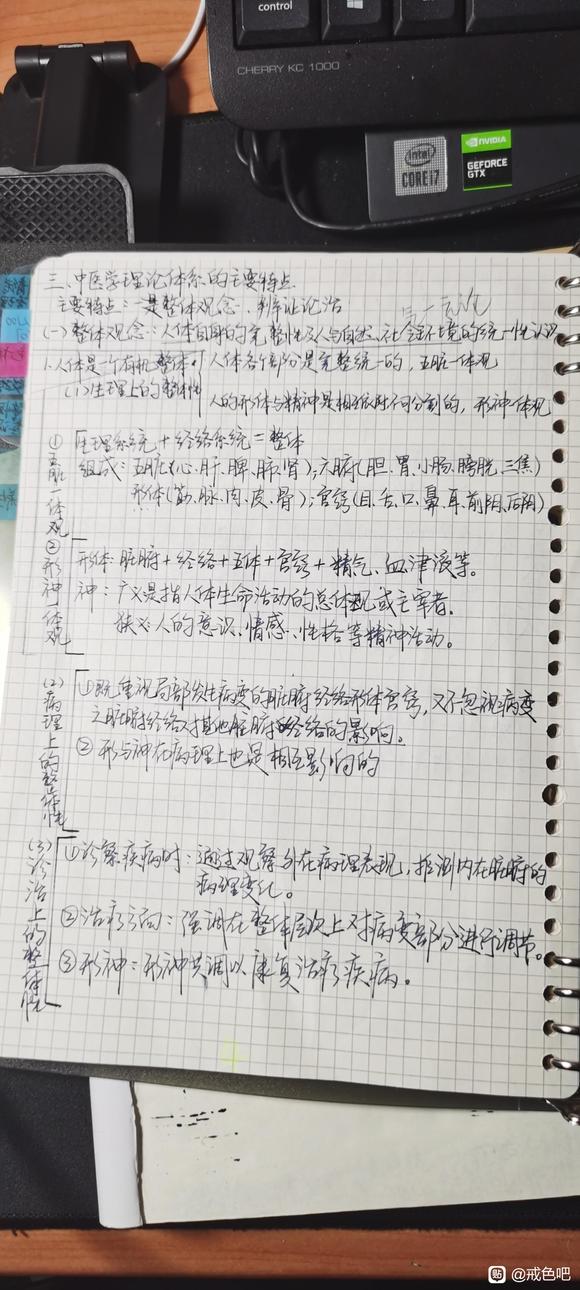 control
CHERRY KC 1000
intel
CORE i7
NVIDIA
GEFORCE
GTX
三、中医学理论体系的主要特点
主要特点：一是整体观念、辨证论治
(一)整体观念：人体自身的完整性及人与自然、社会环境的统一性认识
1.人体是一个有机整体
人体各个部分是完整统一的，五脏一体观
(1)生理上的整体性
人的形体与精神是相互依附不可分割的，形神一体观
①五脏一体观
生理系统+经络系统=整体
组成：五脏(心、肝、脾、肺、肾)；六腑(胆、胃、小肠、膀胱、三焦)
形体(筋、脉、肉、皮、骨)；官窍(目、舌、口、鼻、耳、前阴、后阴)
②形神一体观
形体：脏腑+经络+五体+官窍+精气、血、津液等。
神：广义是指人体生命活动的总体现或主宰者。
狭义：人的意识、情感、性格等精神活动。
(2)病理上的整体性
①既重视局部发生病变的脏腑经络形体官窍，又不忽视病变
之脏腑经络对其他脏腑经络的影响。
②形与神在病理上也是相互影响的
(3)诊治上的整体性
①诊察疾病时：通过观察外在病理表现，推测内在脏腑的
病理变化。
②治疗方向：强调在整体层次上对病变部分进行调节。
③形神：形神共调以康复治疗疾病。
贴 @戒色吧